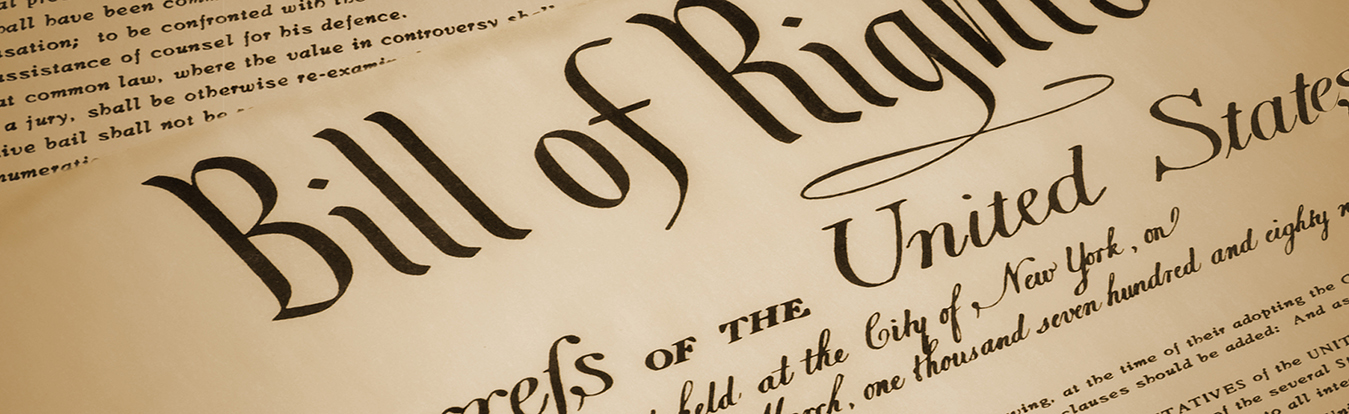 shall have been
sation; to be confronted with the
assistance of counsel for his defence.
at common law, where the value in controversy
a jury, shall be otherwise re-exami
ive bail shall not be
numerati
Bill of Rights
reſs OF THE United States
held at the City of New York, on
March, one thousand seven hundred and eighty
ving, at the time of their adopting the
clauses should be added: And as
TATIVES of the UNIT
of the several
all inte